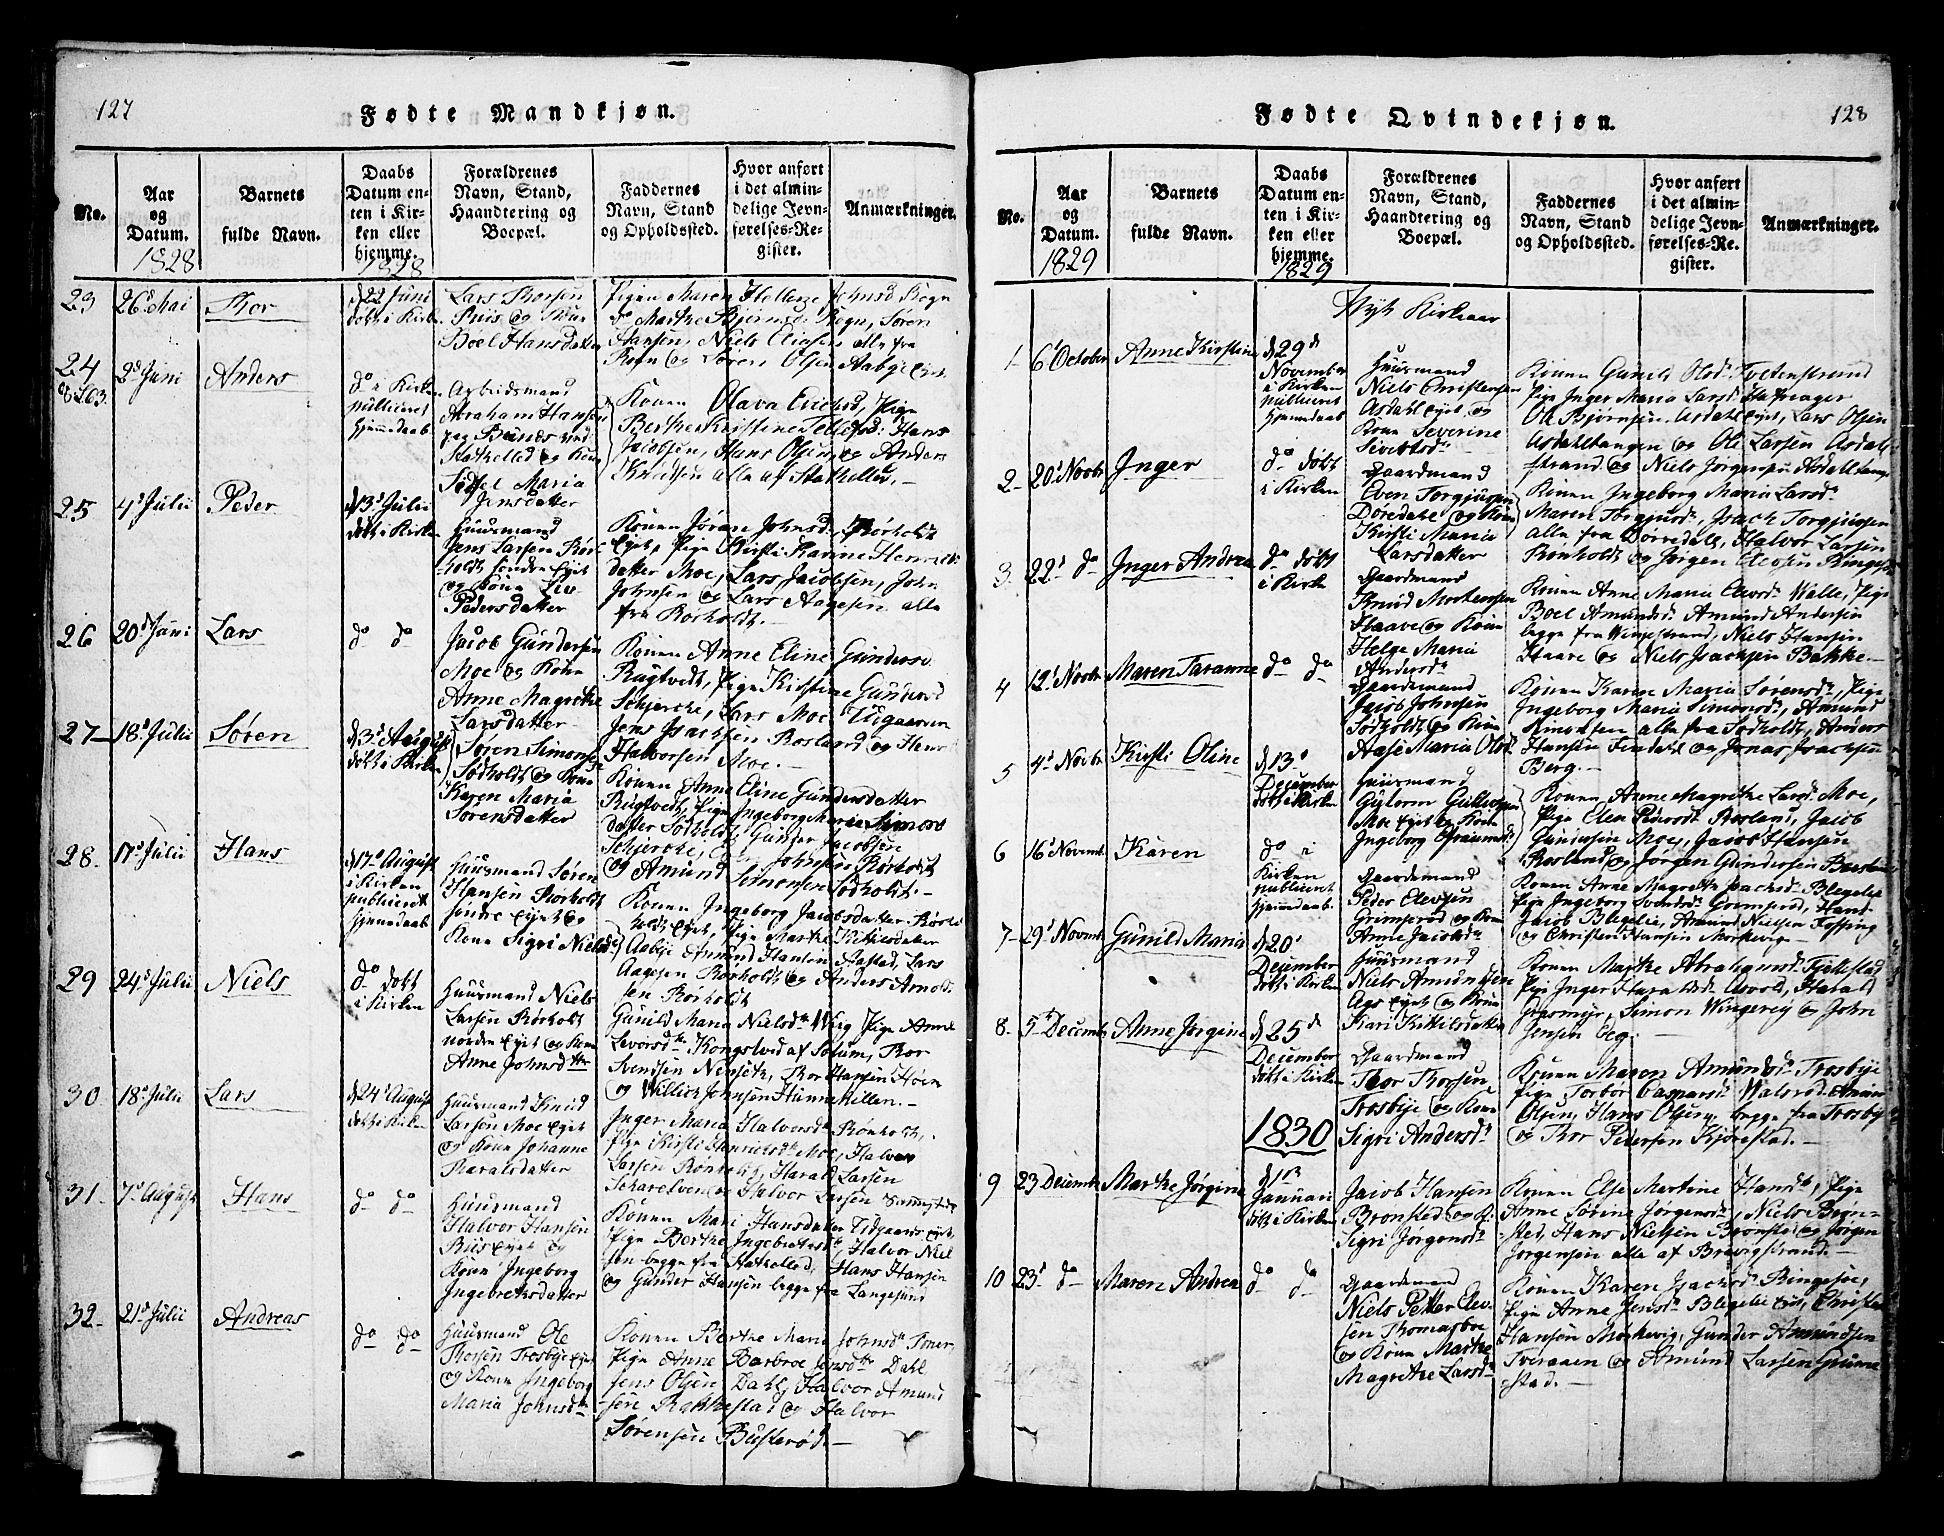 127
Fødte Mandkjøn.
No.
Aar og Datum.
1828
Barnets fulde Navn.
Daabs Datum en-
ten i Kir-
ken eller
hjemme.
1828
Forældrenes
Navn, Stand,
Haandtering og
Boepæl.
Faddernes
Navn, Stand
og Opholdssted.
Hvor anført
i det almin-
delige Jevn-
førelses-Re-
gister.
Anmærkninger.
23
26 Mai
Thor
d 22 Juni
døbt i Kirk
Lars Thorsen
Boel Hansdatter
Pigen Maren Hellene Johnsd Rogn
do Marthe Bjørnsd: Rogn, Søren
Hansen, Niels Eliasen alle fra
Rogn og Søren Olsen Aabye
24
2d Juni
Anders
do i Kirk
publiceret
hjemmedaab
Arbeidsmand
Abraham Hansen
Stathelled og Kone
Sidsel Maria
Jensdatter
Konen Olava Erichsd, Pige
Berthe Kirstine Tollefsd: Hans
Jacobsen, Hans Olsen og Anders
Knudsen alle af Stathelled,-
25
4d Julii
Peder
d 13d Julii
døbt i Kirken
Huusmand
Jens Larsen Rør-
holdt søndre Eyet
og Kone Liv
Pedersdatter
Konen Jøran Johnsd, Rørholt
Eyet, Pige Kirsti Karine Henrichs
datter Moe, Lars Jacobsen, John
Johnsen og Lars Aagesen alle
fra Rørholdt.-
26
20d Juni
Lars
do do
Jacob Gundersen
Moe og Kone
Anne Magrethe
Larsdatter
Konen Anne Eline Gundersd
Rugtvedt, Pige Kirstine Gundersd
Schjerche, Lars Moe, Vugaaren
Jens Isachsen Rosland og Henr
Halvorsen Moe.-
27
18d Julii
Søren
d 3d August
døbt i Kirken
Søren Simonsen
Sødholdt og Kone
Karen Maria
Sørensdatter
Konen Anne Eline Gundersdatter
Rugtvedt, Pige Ingeborg Maria Simons
datter Sødholdt, Gunder Jacobsen
Schjerche, Johnsen Rørholdt
og Amund Simonsen Sødholdt.-
28.
17d Julii
Hans
d 17d August
i Kirken
publiceret
hjemmedaab
Huusmand Søren
Hansen Rørholdt
søndre Eyet og
Kone Sigri Nielsd
Konen Ingeborg Jacobsdatter Rørh-
holdt Eyet, Pige Marthe Kittilsdatter
Aabye Amund Hansen Aastad, Lars
Aagesen Rørholdt og Anders Arnold
sen Rørholdt
29
24d Julii
Niels
do døbt
i Kirken
Huusmand Niels
Larsen Rørholdt
nordre Eyet og Kone
Anne Johnsdtr
Gunild Maria Nielsdtr Wiig Pige Anne
Levorsdtr Kongstved af Solum, Thor
Svendsen Nenseth, Thor Hansen Høen
og Willich Johnsen Hunnekillen.-
30
18d Julii
Lars
d 24d August
døbt i Kirken
Huusmand Knud
Larsen Moe Eyet
og Kone Johanne
Haralsdatter
Inger Maria Halvorsdtr Rørholdt,
Pige Kirsti Henrichsdtr Moe, Halvor
Larsen Rørholdt, Harald Larsen
og Halvor Larsen
31
7d August
Hans
do do
Huusmand
Halvor Hansen
Riis Eyet og
Kone Ingeborg
Ingebretsdatter
Konen Mari Hansdatter Tidgaards Eyet,
Pige Berthe Ingebretsd, Halvor Niel
sen begge fra Stathelled, Hans Hansen
og Gunder Hansen begge fra Langesund
32
21d Julii
Andreas
do do
Huusmand Ole
Thorsen Trosbye Eyet
og Kone Ingeborg
Maria Johnsdtr
Konen Berthe Marie Johnsdtr
Pige Anne Barbroe Jensdtr Dahl
Jens Olsen Dahl, Halvor Amund
sen Rakkestad og Halvor
Sørensen Busterød.-
128
Fødte Qvindekjøn.
No.
Aar og Datum.
1829
Barnets fulde Navn.
Daabs Datum en-
ten i Kir-
ken eller
hjemme.
1829
Forældrenes
Navn, Stand,
Haandtering og
Boepæl.
Faddernes
Navn, Stand
og Opholdssted.
Hvor anført
i det almin-
delige Jevn-
førelses-Re-
gister.
Anmærkninger.
Nyt Kirkeaar
1
6d October
Anne Kirstine
d 29d
November
i Kirken
publiceret
hjemmedaab
Huusmand
Niels Christensen
Asdahl Eyet og
Kone Severine
Sivertsd
Konen Gunild Olsd: Tvetenstrand
Pige Inger Maria Larsd: Hafsager
Ole Bjørnsen, Asdahl Eyet, Lars Olsen
Asdahltangen og Ole Larsen Asdal-
strand og Niels Jørgensen Asdahltang
2
20d Novbr
Inger
do døbt
i Kirken
Gaardmand
Even Torgjusen
Dørdahl og Kone
Kirsti Maria
Larsdatter
Konen Ingeborg Maria Larsd:
Maren Torgjusd, Isach Torgjussen
alle fra Dørrdahl, Halvor Larsen
Rønholdt og Jørgen Elevsen Ringesøe
3
22d do
Inger Andrea
do døbt
i Kirk
Gaardmand
Knud Mortensen
Haave og Kone
Helge Maria
Andersdtr
Konen Anne Maria Elevsd: Walle, Pige
Boel Amundsd: Amund Andersen
begge fra Wingestrand, Niels Hansen
Haave og Niels Isachsen Bakke.-
4
12d Novbr
Maren Taranne
do do
Gaardmand
Jacob Johnsen
Sødholdt og Kone
Aase Maria Olsd
Konen Karen Maria Sørensd, Pige
Ingeborg Maria Simonsd, Amund
Simonsen alle fra Sødholdt, Anders
Hansen Findahl og Jonas Isachsen
Berg.-
5
4d Novbr
Kirsti Oline
d 13d
December
døbt i Kirken
Huusmand
Gutorm Gulliksen
Moe Eyet og Kone
Ingeborg
Konen Anne Magrethe Larsd: Moe,
Pige Elen Pedersd: Rosland, Jacob
Gundersen Moe, Jacob Hansen
Rosland og Jørgen Gundersen
6
16d Novembr
Karen
do i
Kirken
publiceret
hjemmedaab.
Gaardmand
Peder Elevsen
Grimsrød og Kone
Anne Jacobsd
Konen Anne Magrethe Isachsd: Blegelie
Pige Ingeborg Svendsd: Grimsrød, Hans
Jacob Blegelie, Amund Nielsen Fossing
og Christen Hansen Mørkevig.-
7
29d Novembr
Gunild Maria
d 20d
December
døbt i Kirken
Huusmand
Niels Amundsen
Aas Eyet og Kone
Kari Kittilsdatter
Konen Marthe Abrahamsd: Fjellstad
Pige Inger Asvold, Harald
Gorsmyr, Simon Wingereig og John
Jensen Eeg.-
8
5d Decembr
Anne Jørgine
d 25d
December
døbt i Kirken
Gaardmand
Thor Thorsen
Trosbye og Kone
Sigri Andersd
Konen Maren Amundsd: Trosbye
Pige Torbør Casparsd: Walord: Amund
Olsen, Hans Olsen, begge fra Trosby
og Thor Pedersen Kjørestad.-
1830
9
23 Decembr
Marthe Jørgine
d 1
Januari
døbt i Kirken
Jacob Hansen
Brønsted og K:
Sigri Jørgensd
Konen Else Martine Hansd, Pige
Anne Sørine Jørgensd, Niels Brøn-
sted, Hans Nielsen Brønsted og Jørgen
Jørgensen alle af Brevigstrand.-
10
23d do
Maren Andrea
do do
Gaardmand
Niels Petter Elev-
sen Thomasboe
og Kone Marthe
Magrethe Larsd
Konen Karen Isachsd: Ringesøe,
Pige Anne Jensd: Blegelie Eyet, Christen
Hansen Mørkevig, Gunder Amundsen
Tveraaen og Amund Larsen
stad.-